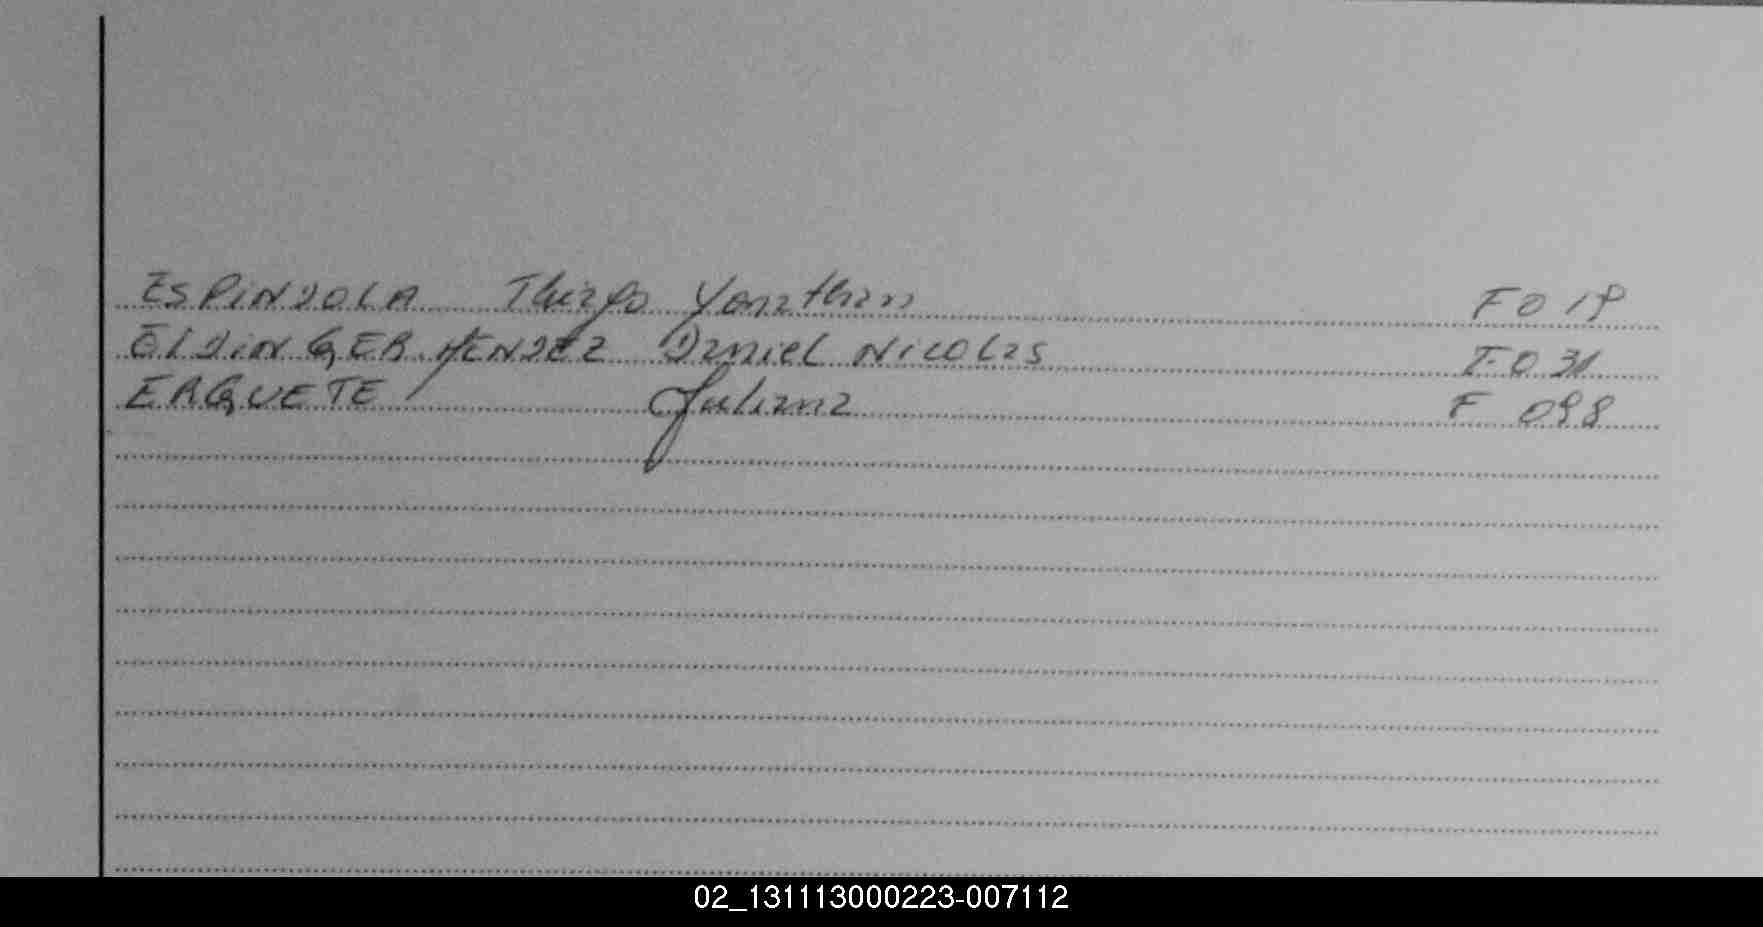 ESPINDOLA Thiago Yonathan F0 19
ELDINGER MENDEZ Daniel Nicolas F0 31
ERGUETE Juliana F 098
02_131113000223-007112